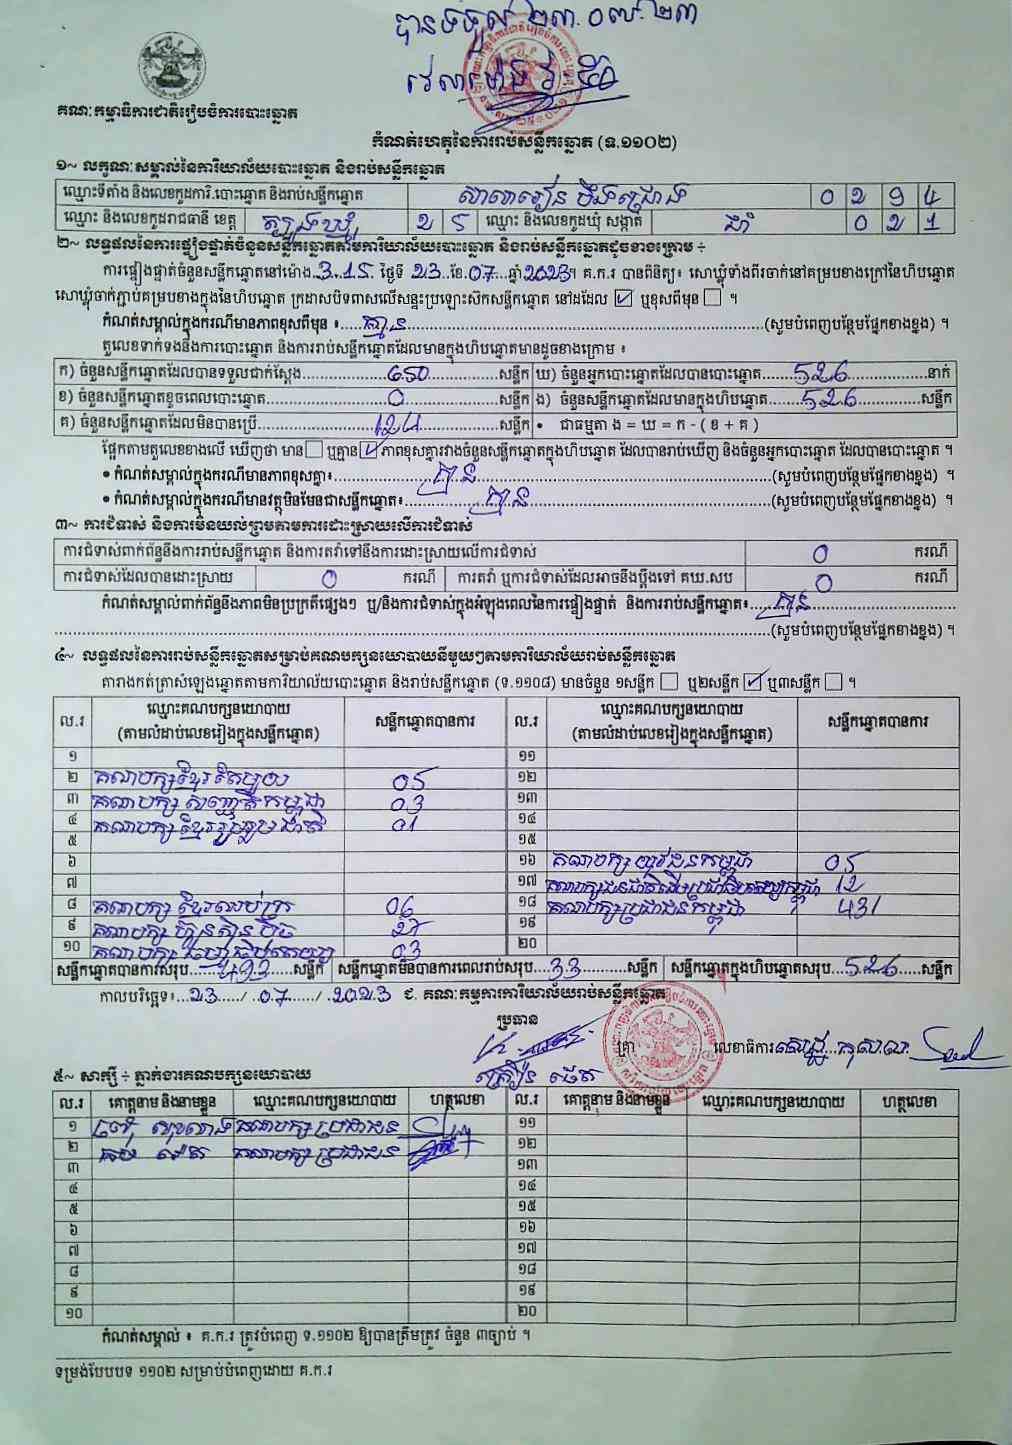 បានទទួល ២៣.០៧.២៣
វេលាម៉ោង ៦:៥០
គណៈកម្មាធិការជាតិរៀបចំការបោះឆ្នោត
កំណត់ហេតុនៃការរាប់សន្លឹកឆ្នោត (ទ.១១០២)
១~ លក្ខណៈសម្គាល់នៃការិយាល័យបោះឆ្នោត និងរាប់សន្លឹកឆ្នោត
ឈ្មោះទីតាំង និងលេខកូដការិ.បោះឆ្នោត និងរាប់សន្លឹកឆ្នោត សាលារៀន បឹងជ្រោង 0 2 9 4
ឈ្មោះ និងលេខកូដរាជធានី ខេត្ត ត្បូងឃ្មុំ 2 5 ឈ្មោះ និងលេខកូដឃុំ សង្កាត់ ជាំ 0 2 1
២~ លទ្ធផលនៃការផ្ទៀងផ្ទាត់ចំនួនសន្លឹកឆ្នោតតាមការិយាល័យបោះឆ្នោត និងរាប់សន្លឹកឆ្នោតដូចខាងក្រោម ÷
ការផ្ទៀងផ្ទាត់ចំនួនសន្លឹកឆ្នោតនៅម៉ោង 3:15 ថ្ងៃទី 23 ខែ 07 ឆ្នាំ 2023។ គ.ក.រ បានពិនិត្យ៖ សោឃ្លុំទាំងពីរចាក់នៅគម្របខាងក្រៅនៃហិបឆ្នោត
សោឃ្លុំចាក់ភ្ជាប់គម្របខាងក្នុងនៃហិបឆ្នោត ក្រដាសបិទពាសលើសន្ទះប្រឡោះសឹកសន្លឹកឆ្នោត នៅដដែល ☑ ឬខុសពីមុន ☐ ។
កំណត់សម្គាល់ក្នុងករណីមានភាពខុសពីមុន ៖ គ្មាន (សូមបំពេញបន្ថែមផ្នែកខាងខ្នង) ។
តួលេខទាក់ទងនឹងការបោះឆ្នោត និងការរាប់សន្លឹកឆ្នោតដែលមានក្នុងហិបឆ្នោតមានដូចខាងក្រោម ៖
ក) ចំនួនសន្លឹកឆ្នោតដែលបានទទួលជាក់ស្តែង 650 សន្លឹក ឃ) ចំនួនអ្នកបោះឆ្នោតដែលបានបោះឆ្នោត 526 នាក់
ខ) ចំនួនសន្លឹកឆ្នោតខូចពេលបោះឆ្នោត 0 សន្លឹក ង) ចំនួនសន្លឹកឆ្នោតដែលមានក្នុងហិបឆ្នោត 526 សន្លឹក
គ) ចំនួនសន្លឹកឆ្នោតដែលមិនបានប្រើ 124 សន្លឹក • ជាធម្មតា ង = ឃ = ក - ( ខ + គ )
ផ្អែកតាមតួលេខខាងលើ ឃើញថា មាន ☐ ឬគ្មាន ☑ ភាពខុសគ្នារវាងចំនួនសន្លឹកឆ្នោតក្នុងហិបឆ្នោត ដែលបានរាប់ឃើញ និងចំនួនអ្នកបោះឆ្នោត ដែលបានបោះឆ្នោត ។
• កំណត់សម្គាល់ក្នុងករណីមានភាពខុសគ្នា៖ គ្មាន (សូមបំពេញបន្ថែមផ្នែកខាងខ្នង) ។
• កំណត់សម្គាល់ក្នុងករណីមានវត្ថុមិនមែនជាសន្លឹកឆ្នោត៖ គ្មាន (សូមបំពេញបន្ថែមផ្នែកខាងខ្នង) ។
៣~ ការជំទាស់ និងការមិនយល់ព្រមតាមការដោះស្រាយលើការជំទាស់
ការជំទាស់ពាក់ព័ន្ធនឹងការរាប់សន្លឹកឆ្នោត និងការតវ៉ាទៅនឹងការដោះស្រាយលើការជំទាស់ 0 ករណី
ការជំទាស់ដែលបានដោះស្រាយ 0 ករណី ការតវ៉ា ឬការជំទាស់ដែលអាចនឹងប្តឹងទៅ គឃ.សប 0 ករណី
កំណត់សម្គាល់ពាក់ព័ន្ធនឹងភាពមិនប្រក្រតីផ្សេងៗ ឬ/និងការជំទាស់ក្នុងអំឡុងពេលនៃការផ្ទៀងផ្ទាត់ និងការរាប់សន្លឹកឆ្នោត៖ គ្មាន
(សូមបំពេញបន្ថែមផ្នែកខាងខ្នង) ។
៤~ លទ្ធផលនៃការរាប់សន្លឹកឆ្នោតសម្រាប់គណបក្សនយោបាយនីមួយៗតាមការិយាល័យរាប់សន្លឹកឆ្នោត
តារាងកត់ត្រាសំឡេងឆ្នោតតាមការិយាល័យបោះឆ្នោត និងរាប់សន្លឹកឆ្នោត (ទ.១១០៨) មានចំនួន ១សន្លឹក ☐ ឬ២សន្លឹក ☑ ឬ៣សន្លឹក ☐ ។
ល.រ ឈ្មោះគណបក្សនយោបាយ សន្លឹកឆ្នោតបានការ ល.រ ឈ្មោះគណបក្សនយោបាយ សន្លឹកឆ្នោតបានការ
(តាមលំដាប់លេខរៀងក្នុងសន្លឹកឆ្នោត) (តាមលំដាប់លេខរៀងក្នុងសន្លឹកឆ្នោត)
១ ១១
២ គណបក្សខ្មែរតែមួយ 05 ១២
៣ គណបក្ស សញ្ជាតិកម្ពុជា 03 ១៣
៤ គណបក្ស ខ្មែររួបរួមជាតិ 01 ១៤
៥ ១៥
៦ ១៦ គណបក្ស យុវជនកម្ពុជា 05
៧ ១៧ គណបក្សជនជាតិដើមប្រជាធិបតេយ្យកម្ពុជា 12
៨ គណបក្ស ខ្មែរឈប់ក្រ 06 ១៨ គណបក្សប្រជាជនកម្ពុជា 431
៩ គណបក្ស ហ៊្វុនស៊ិនប៉ិច 27 ១៩
១០ គណបក្ស ធម្មាធិបតេយ្យ 03 ២០
សន្លឹកឆ្នោតបានការសរុប 493 សន្លឹក សន្លឹកឆ្នោតមិនបានការពេលរាប់សរុប 33 សន្លឹក សន្លឹកឆ្នោតក្នុងហិបឆ្នោតសរុប 526 សន្លឹក
កាលបរិច្ឆេទ៖ 23 / 07 / 2023 ជ. គណៈកម្មការការិយាល័យរាប់សន្លឹកឆ្នោត
ប្រធាន
លេខាធិការ
៥~ សាក្សី ÷ ភ្នាក់ងារគណបក្សនយោបាយ
ល.រ គោត្តនាម និងនាមខ្លួន ឈ្មោះគណបក្សនយោបាយ ហត្ថលេខា ល.រ គោត្តនាម និងនាមខ្លួន ឈ្មោះគណបក្សនយោបាយ ហត្ថលេខា
១ គណបក្ស ប្រជាជន ១១
២ គណបក្ស ប្រជាជន ១២
៣ ១៣
៤ ១៤
៥ ១៥
៦ ១៦
៧ ១៧
៨ ១៨
៩ ១៩
១០ ២០
កំណត់សម្គាល់ ៖ គ.ក.រ ត្រូវបំពេញ ទ.១១០២ ឱ្យបានត្រឹមត្រូវ ចំនួន ៣ច្បាប់ ។
ទម្រង់បែបបទ ១១០២ សម្រាប់បំពេញដោយ គ.ក.រ